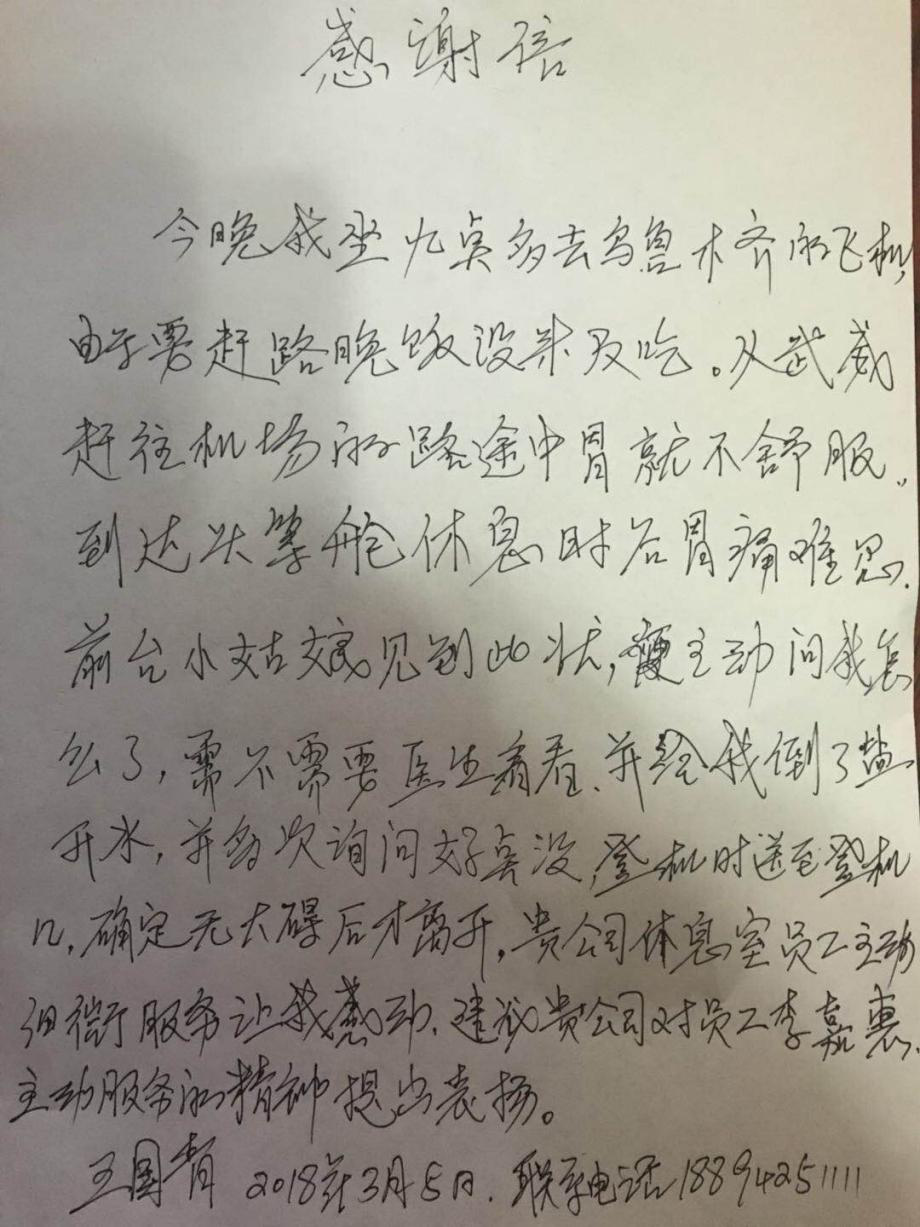 感谢信
今晚我坐九点多去乌鲁木齐的飞机,
由于要赶路晚饭没来及吃。从武威
赶往机场的路途中胃就不舒服。
到达头等舱休息时后胃痛难忍.
前台小姑娘见到此状,便主动问我怎
么了,需不需要医生看看.并给我倒了盐
开水,并多次询问好点没,登机时送至登机
口,确定无大碍后才离开,贵公司休息室员工主动
细微服务让我感动.建议贵公司对员工李嘉惠.
主动服务的精神提出表扬。
王国智 2018年3月5日.联系电话18894251111